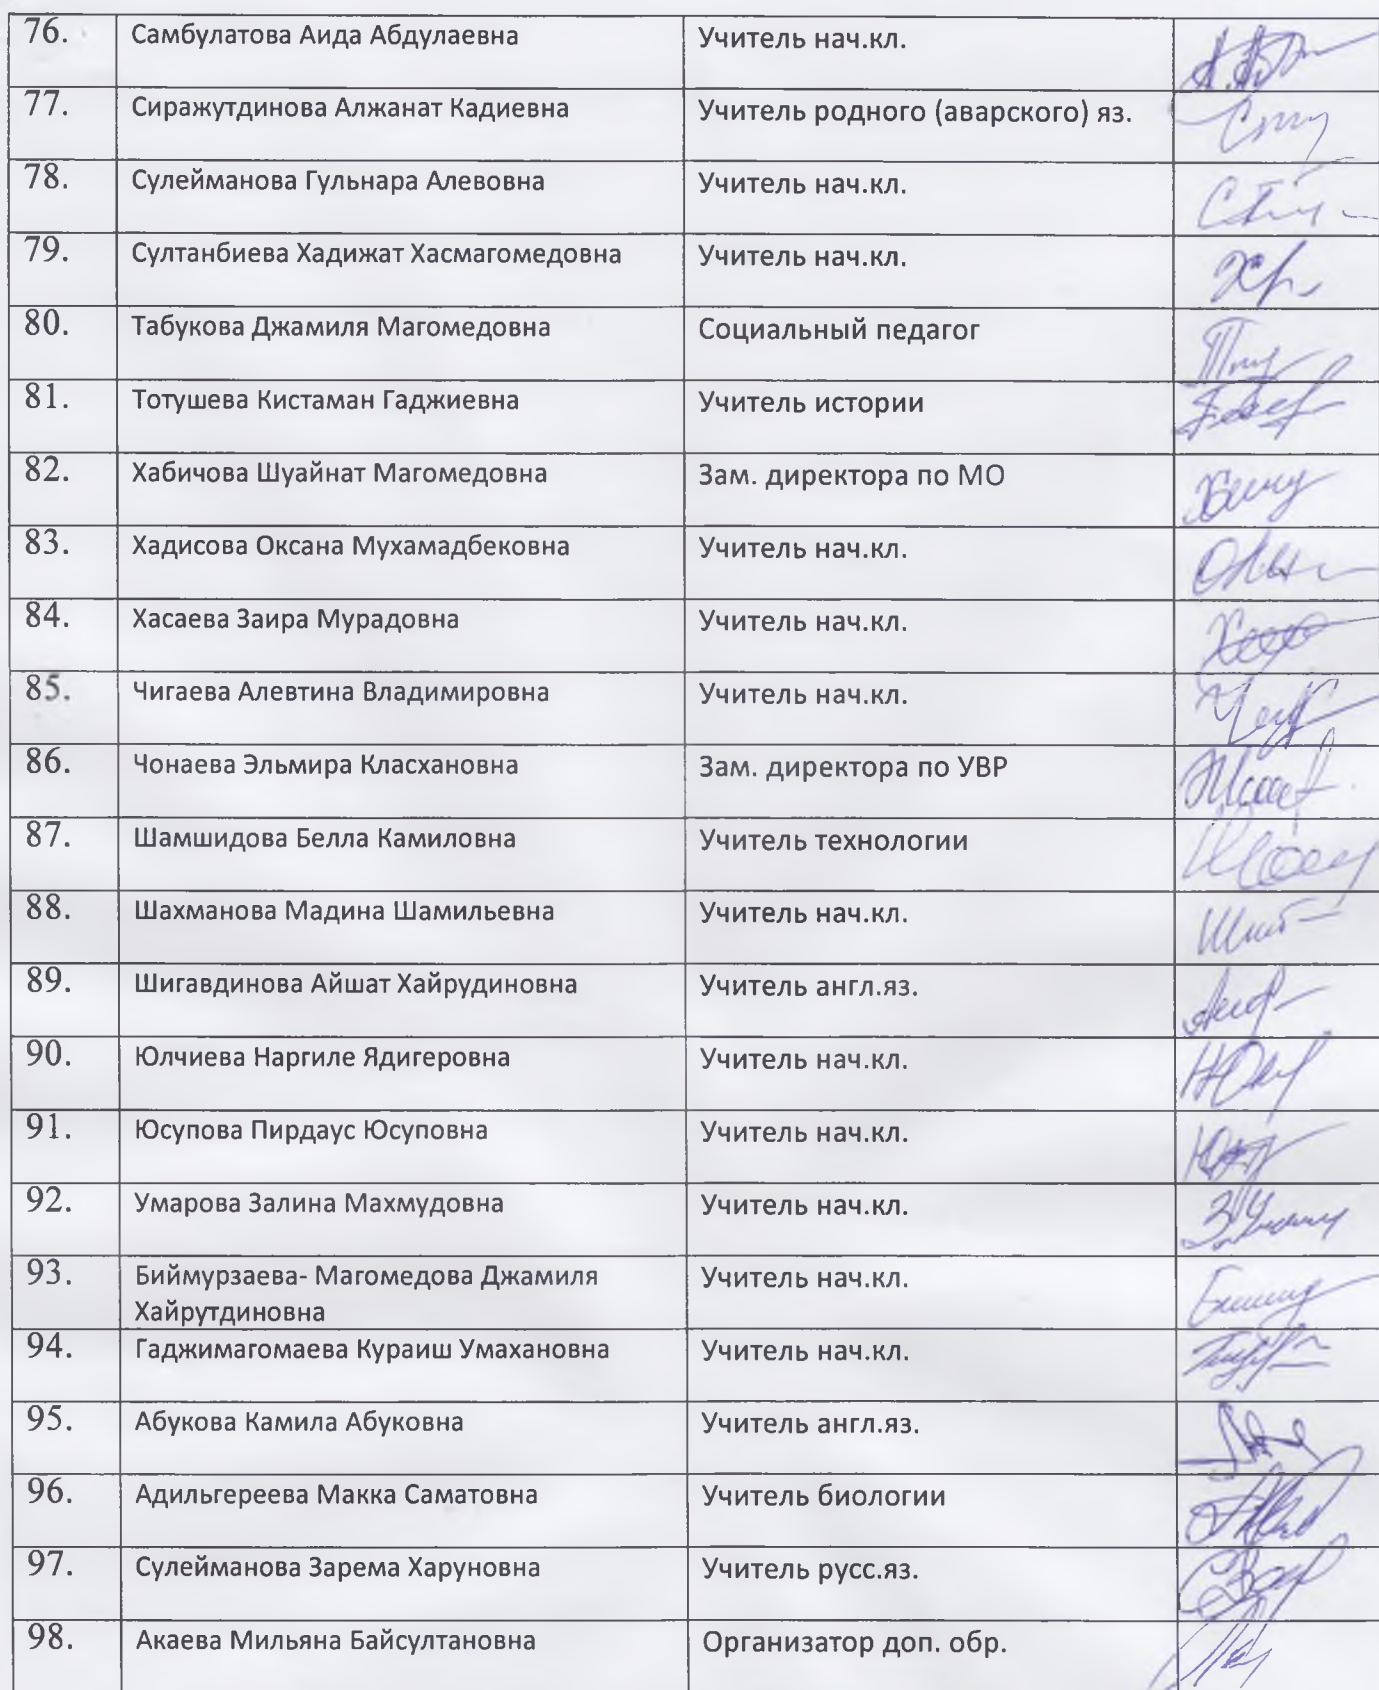 76. Самбулатова Аида Абдулаевна Учитель нач.кл.
77. Сиражутдинова Алжанат Кадиевна Учитель родного (аварского) яз.
78. Сулейманова Гульнара Алевовна Учитель нач.кл.
79. Султанбиева Хадижат Хасмагомедовна Учитель нач.кл.
80. Табукова Джамиля Магомедовна Социальный педагог
81. Тотушева Кистаман Гаджиевна Учитель истории
82. Хабичова Шуайнат Магомедовна Зам. директора по МО
83. Хадисова Оксана Мухамадбековна Учитель нач.кл.
84. Хасаева Заира Мурадовна Учитель нач.кл.
85. Чигаева Алевтина Владимировна Учитель нач.кл.
86. Чонаева Эльмира Класхановна Зам. директора по УВР
87. Шамшидова Белла Камиловна Учитель технологии
88. Шахманова Мадина Шамильевна Учитель нач.кл.
89. Шигавдинова Айшат Хайрудиновна Учитель англ.яз.
90. Юлчиева Наргиле Ядигеровна Учитель нач.кл.
91. Юсупова Пирдаус Юсуповна Учитель нач.кл.
92. Умарова Залина Махмудовна Учитель нач.кл.
93. Биймурзаева- Магомедова Джамиля Учитель нач.кл.
Хайрутдиновна
94. Гаджимагомаева Кураиш Умахановна Учитель нач.кл.
95. Абукова Камила Абуковна Учитель англ.яз.
96. Адильгереева Макка Саматовна Учитель биологии
97. Сулейманова Зарема Харуновна Учитель русс.яз.
98. Акаева Мильяна Байсултановна Организатор доп. обр.